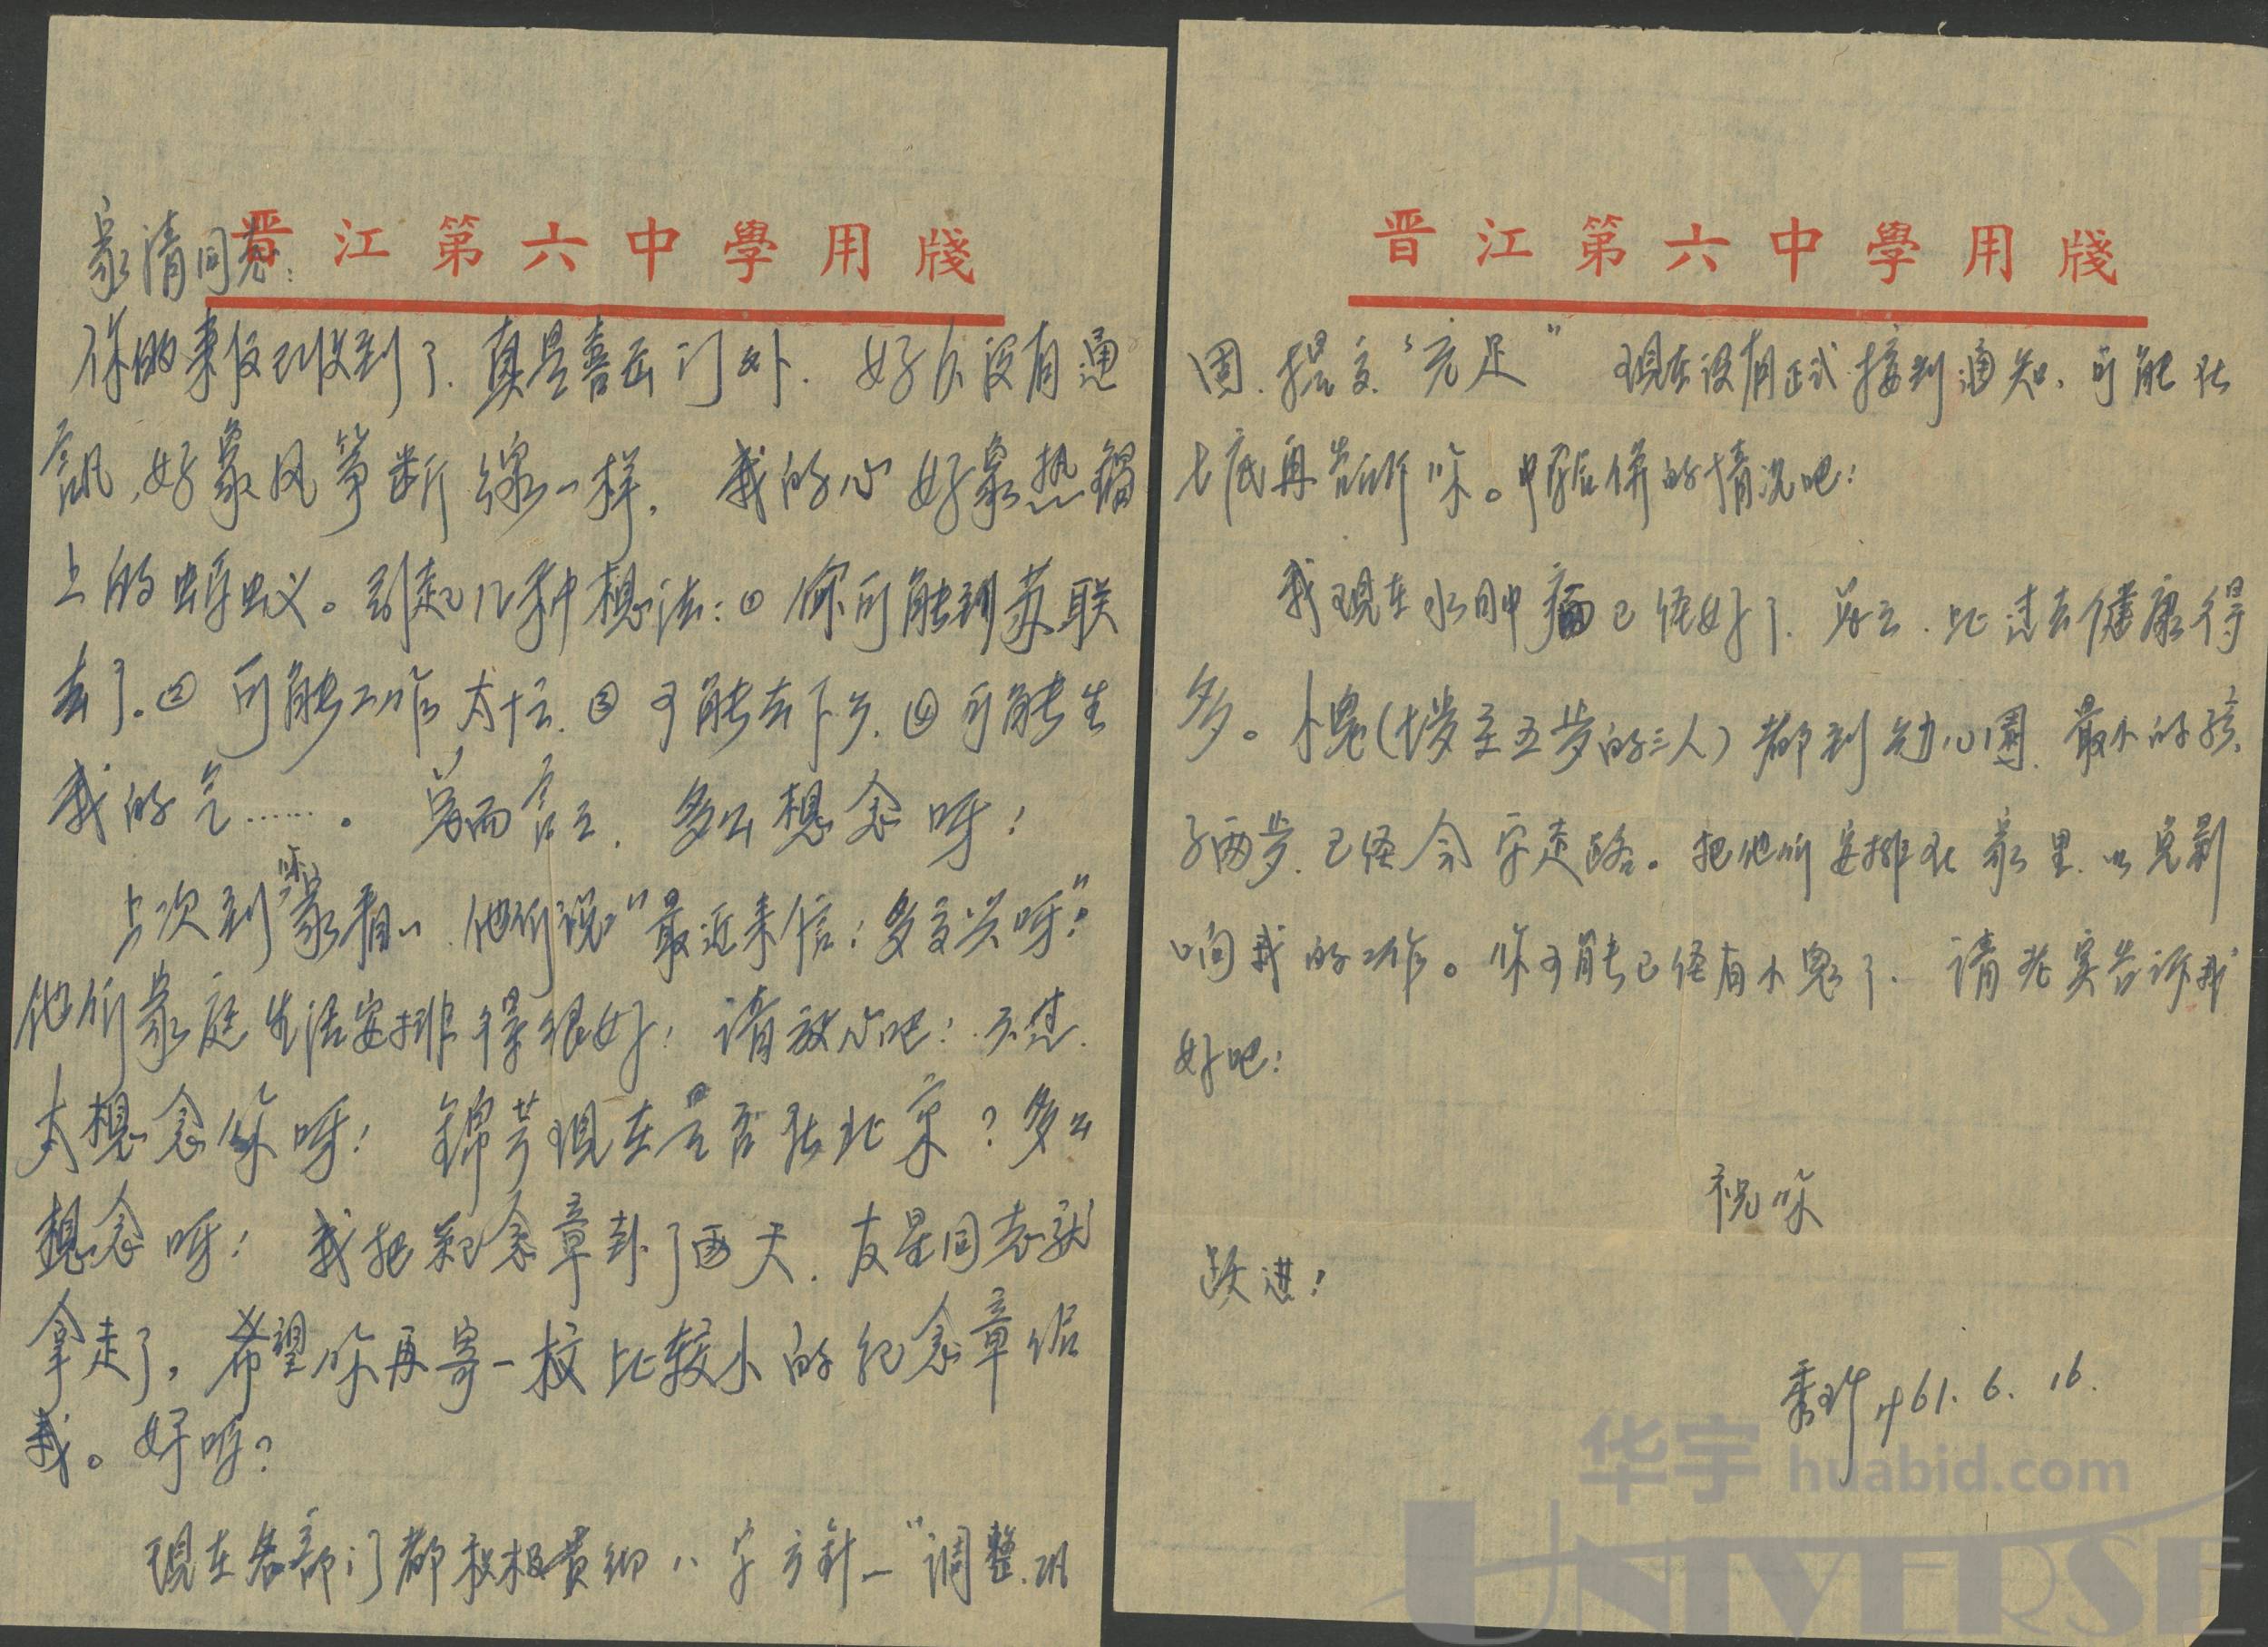 晋江第六中學用牋
家清同志:
你的来信已收到了.真是喜出门外.好久没有通
訊,好象风筝断线一样,我的心好象热鍋
上的蚂蚁。引起几种想法:①你可能到苏联
去了。②可能工作太忙.③可能去下乡.④可能生
我的气……。总而言之.多么想念呀!
上次到你家看, 他们说"最近来信!多高兴呀"
他们家庭生活安排得很好!请放心吧!不过.
太想念你呀!錦芳現在是否在北京?多么
想念呀!我把紀念章卦了两天.友星同志就
拿走了,希望你再寄一枚比較小的纪念章给
我。好呀?
現在各部门都积极贯彻八字方針—"調整.巩
晋江第六中學用牋
固.提高.充足" 現在没有正式接到通知,可能在
七底再告訴你。中学合併的情况吧!
我現在水肿病已经好了.总之.比过去健康得
多。小鬼(七岁至五岁的三人)都到幼儿園.最小的孩
子两岁.已经会学走路。把他们安排在家里.以免影
响我的工作。你可能已经有小鬼了.請老实告訴我
好吧!
祝你
跃进!
61.6.16.
华宇 huabid.com
UNIVERSE